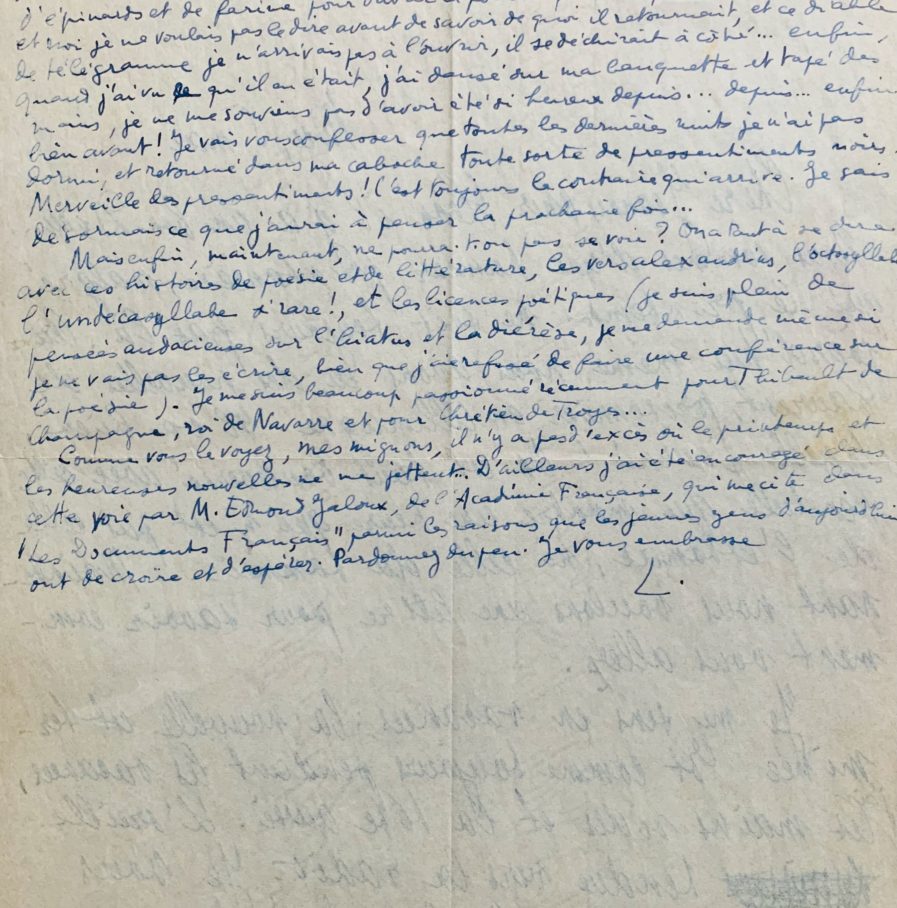 d'épinards et de farine pour
et moi je ne voulais pas le dire avant de savoir de quoi il retournait, et ce diable
de télégramme je n'arrivais pas à l'ouvrir, il se déchirait à côté... enfin,
quand j'ai vu ce qu'il en était, j'ai dansé sur ma banquette et tapé des
mains, je ne me souviens pas d'avoir été si heureux depuis... depuis... enfin
bien avant! Je vais vous confesser que toutes les dernières nuits je n'ai pas
dormi, et retourné dans ma caboche toute sorte de pressentiments noirs.
Merveille des pressentiments! C'est toujours le contraire qui arrive. Je sais
désormais ce que j'aurai à penser la prochaine fois...
Mais enfin, maintenant, ne pourra-t-on pas se voir? On a tant à se dire
avec ces histoires de poésie et de littérature, les vers alexandrins, l'octosyllabe
l'undécasyllabe si rare!, et les licences poétiques (je suis plein de
pensées audacieuses sur l'hiatus et la diérèse, je me demande même si
je ne vais pas les écrire, bien que j'aie refusé de faire une conférence sur
la poésie). Je me suis beaucoup passionné récemment pour Thibault de
Champagne, roi de Navarre et pour Chrétien de Troyes...
Comme vous le voyez, mes mignons, il n'y a pas d'excès où le printemps et
les heureuses nouvelles ne me jettent... D'ailleurs j'ai été encouragé dans
cette voie par M. Edmond Jaloux, de l'Académie Française, qui me cite dans
"Les Documents Français" parmi les raisons que les jeunes gens d'aujourd'hui
ont de croire et d'espérer. Pardonnez du peu. Je vous embrasse
L.